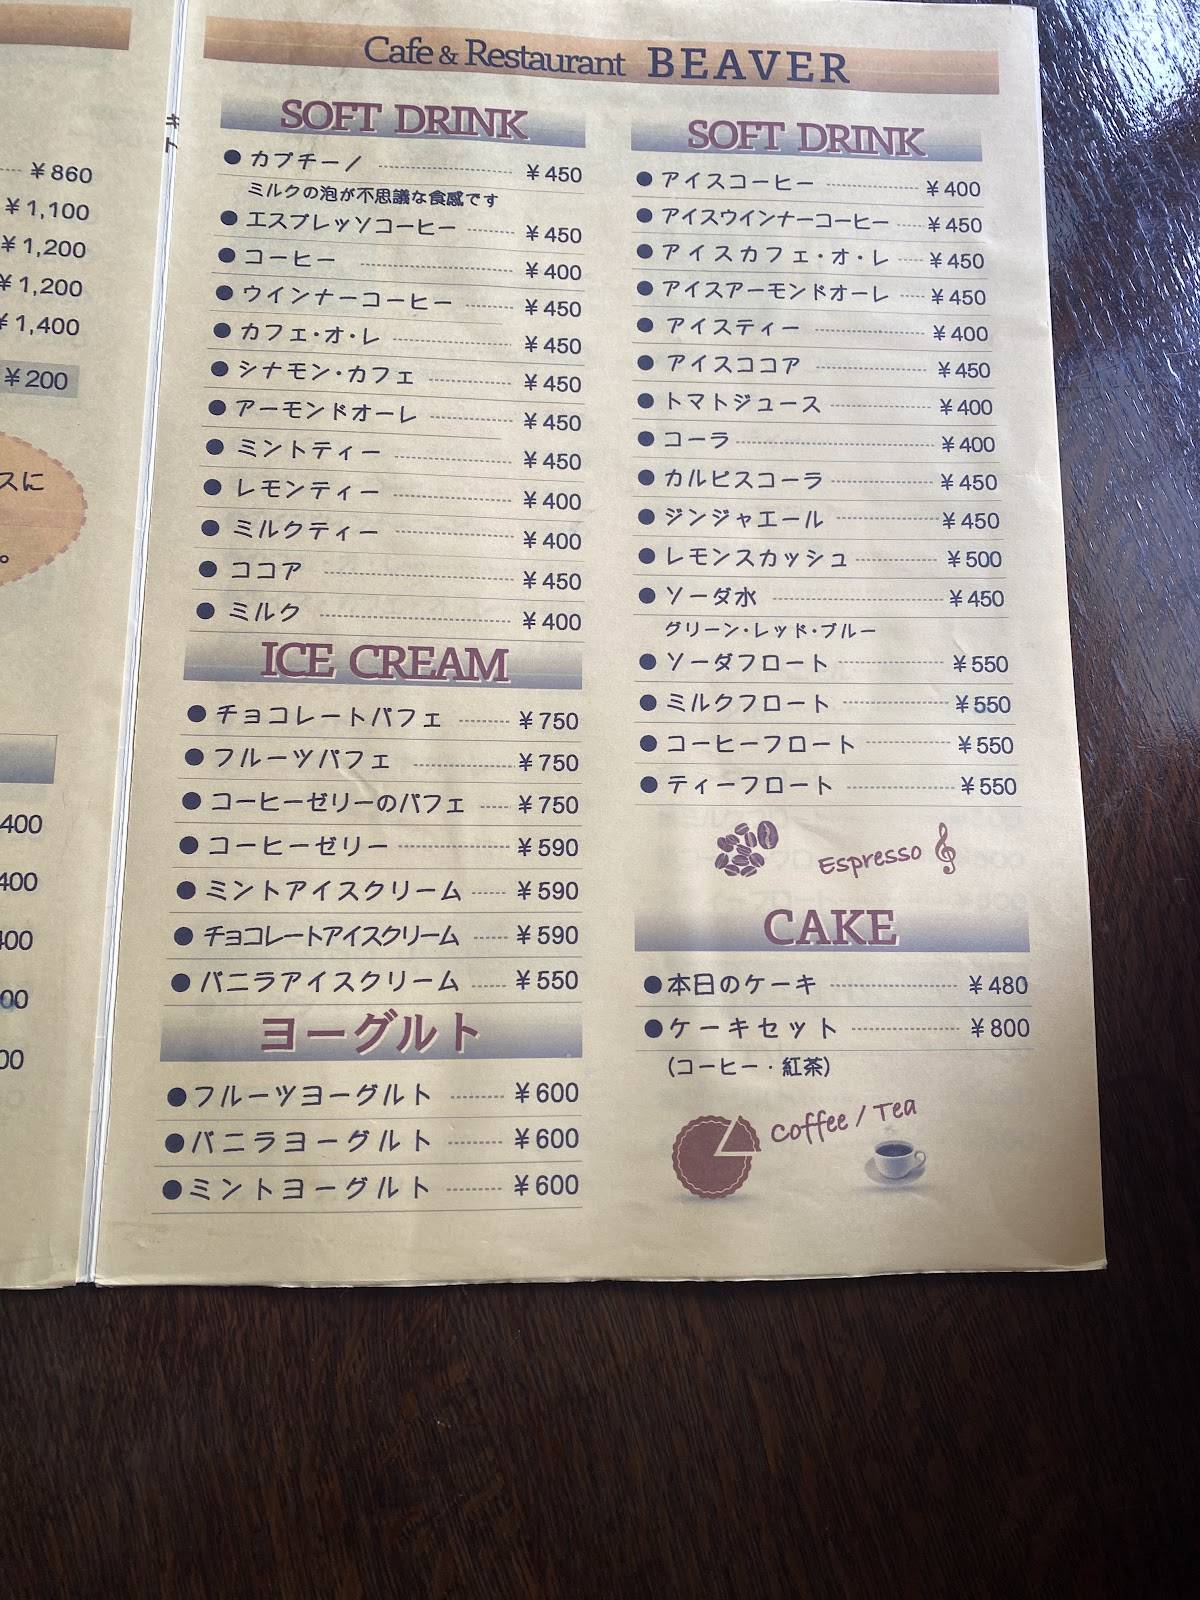 ¥860
¥1,100
¥1,200
¥1,200
¥1,400
¥200
スに
。
400
400
400
00
00
Cafe & Restaurant BEAVER
SOFT DRINK
●カプチーノ ¥450
ミルクの泡が不思議な食感です
●エスプレッソコーヒー ¥450
●コーヒー ¥400
●ウインナーコーヒー ¥450
●カフェ・オ・レ ¥450
●シナモン・カフェ ¥450
●アーモンドオーレ ¥450
●ミントティー ¥450
●レモンティー ¥400
●ミルクティー ¥400
●ココア ¥450
●ミルク ¥400
ICE CREAM
●チョコレートパフェ ¥750
●フルーツパフェ ¥750
●コーヒーゼリーのパフェ ¥750
●コーヒーゼリー ¥590
●ミントアイスクリーム ¥590
●チョコレートアイスクリーム ¥590
●バニラアイスクリーム ¥550
ヨーグルト
●フルーツヨーグルト ¥600
●バニラヨーグルト ¥600
●ミントヨーグルト ¥600
SOFT DRINK
●アイスコーヒー ¥400
●アイスウインナーコーヒー ¥450
●アイスカフェ・オ・レ ¥450
●アイスアーモンドオーレ ¥450
●アイスティー ¥400
●アイスココア ¥450
●トマトジュース ¥400
●コーラ ¥400
●カルピスコーラ ¥450
●ジンジャエール ¥450
●レモンスカッシュ ¥500
●ソーダ水 ¥450
グリーン・レッド・ブルー
●ソーダフロート ¥550
●ミルクフロート ¥550
●コーヒーフロート ¥550
●ティーフロート ¥550
Espresso
CAKE
●本日のケーキ ¥480
●ケーキセット ¥800
(コーヒー・紅茶)
Coffee / Tea